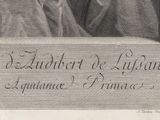 d'Audibert de Lussan
Aquitaniæ Primas